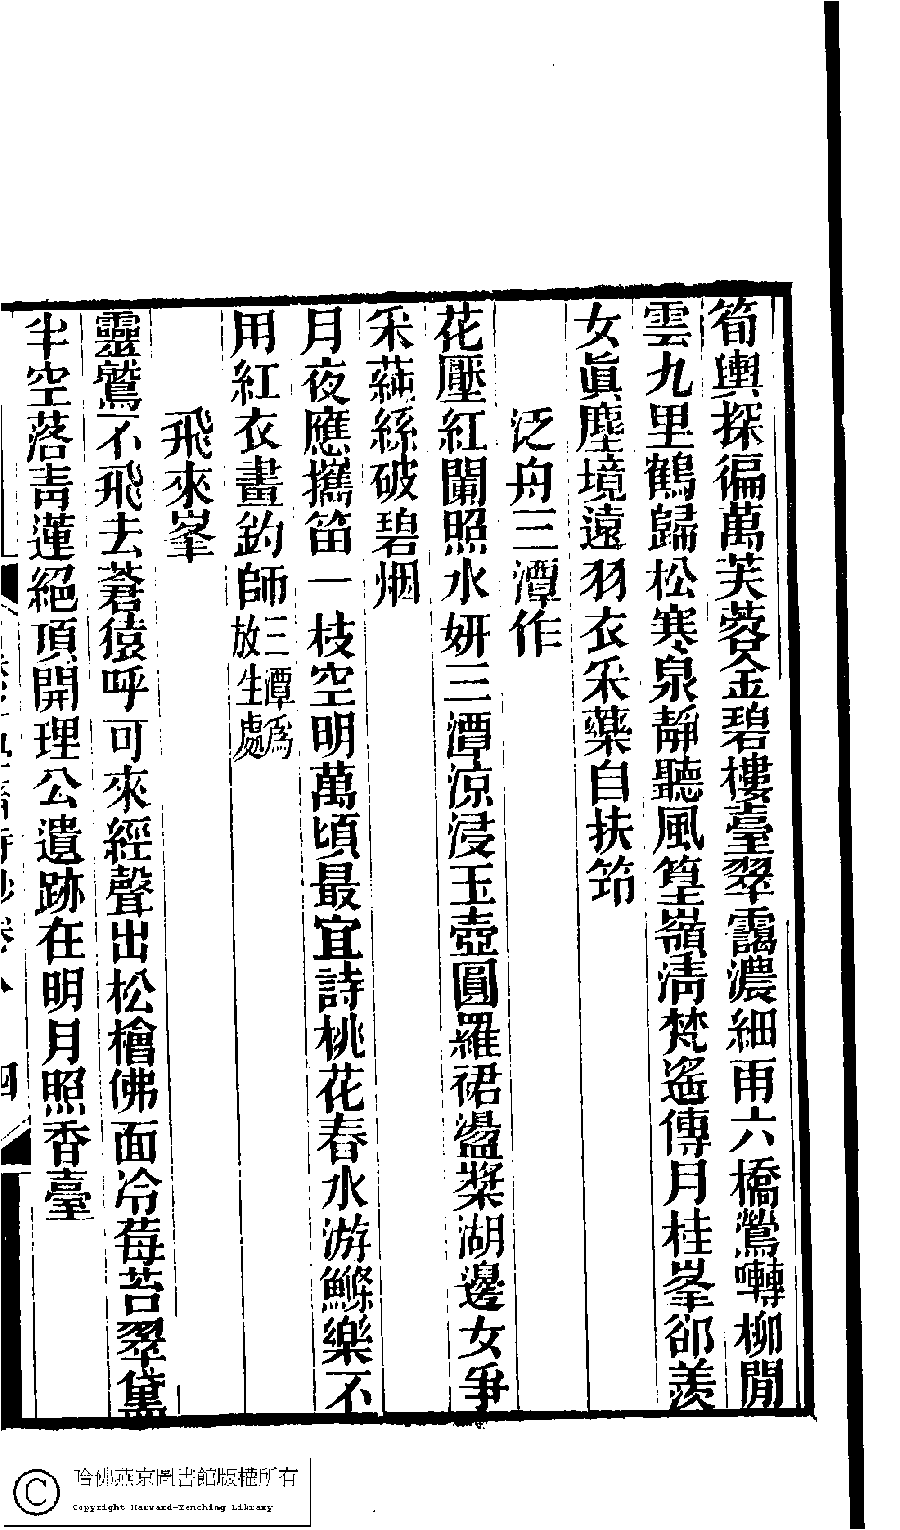 筍輿探徧萬芙蓉金碧樓臺翠靄濃細雨六橋鶯囀柳閒
雲九里鶴歸松寒泉靜聽風篁嶺清梵遙傳月桂峯卻羨
女眞塵境遠羽衣采藥自扶筇
泛舟三潭作
花壓紅闌照水妍三潭涼浸玉壺圓羅裙盪槳湖邊女爭
采蒓絲破碧烟
月夜應攜笛一枝空明萬頃最宜詩桃花春水游鰷樂不
用紅衣畫釣師三潭爲放生處
飛來峯
靈鷲不飛去蒼猿呼可來經聲出松檜佛面冷莓苔翠黛
半空落靑蓮絕頂開理公遺跡在明月照香臺
詩鈔卷八
四
哈佛燕京圖書館版權所有
Copyright Harvard-Yenching Library